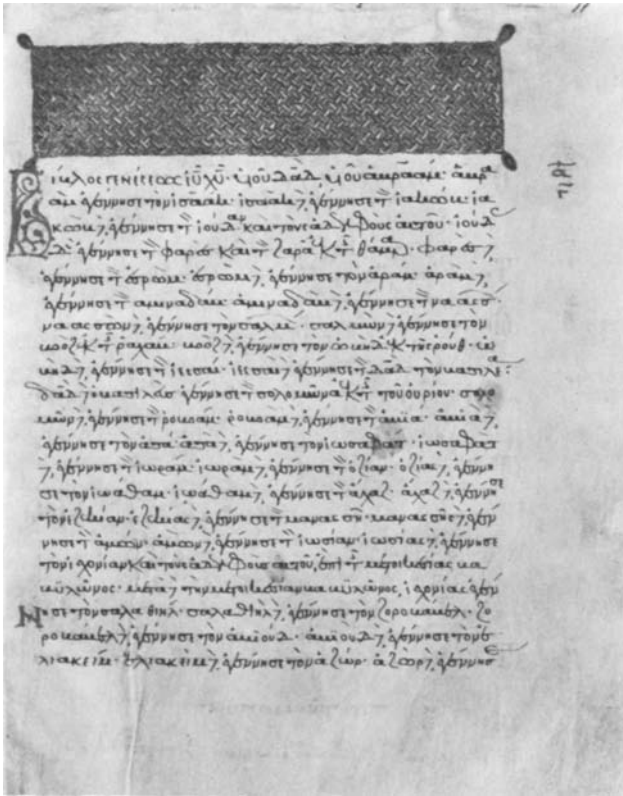 Βίβλος γενέσεως ἰῦ χῦ· υἱοῦ δᾱδ υἱοῦ ἀβραάμ· ἀβρα
ὰμ ἐγέννησε τὸν ἰσαάκ· ἰσαὰκ δὲ ἐγέννησε τὸν ἰακώβ· ἰα
κὼβ δὲ ἐγέννησε τὸν ἰούδαν καὶ τοὺς ἀδελφοὺς αὐτοῦ· ἰούδας
δὲ ἐγέννησε τὸν φαρὲς καὶ τὸν ζαρὰ ἐκ τῆς θάμαρ· φαρὲς δὲ
ἐγέννησε τὸν ἐσρώμ· ἐσρὼμ δὲ ἐγέννησε τὸν ἀράμ· ἀρὰμ δὲ
ἐγέννησε τὸν ἀμιναδάμ· ἀμιναδὰμ δὲ ἐγέννησε τὸν ναασσών·
ναασσὼν δὲ ἐγέννησε τὸν σαλμών· σαλμὼν δὲ ἐγέννησε τὸν
βοὸζ ἐκ τῆς ῥαχάβ· βοὸζ δὲ ἐγέννησε τὸν ὠβὴδ ἐκ τῆς ῥούθ· ὠ
βὴδ δὲ ἐγέννησε τὸν ἰεσσαί· ἰεσσαὶ δὲ ἐγέννησε τὸν δᾱδ τὸν βασιλέα·
δᾱδ δὲ ὁ βασιλεὺς ἐγέννησε τὸν σολομῶνα ἐκ τῆς τοῦ οὐρίου· σολο
μὼν δὲ ἐγέννησε τὸν ῥοβοάμ· ῥοβοὰμ δὲ ἐγέννησε τὸν ἀβιά· ἀβιὰ δὲ
ἐγέννησε τὸν ἀσά· ἀσὰ δὲ ἐγέννησε τὸν ἰωσαφάτ· ἰωσαφὰτ
δὲ ἐγέννησε τὸν ἰωράμ· ἰωρὰμ δὲ ἐγέννησε τὸν ὀζίαν· ὀζίας δὲ ἐγέννη
σε τὸν ἰωάθαμ· ἰωάθαμ δὲ ἐγέννησε τὸν ἄχαζ· ἄχαζ δὲ ἐγέννησε
τὸν ἐζεκίαν· ἐζεκίας δὲ ἐγέννησε τὸν μανασσῆ· μανασσῆς δὲ ἐγέν
νησε τὸν ἀμών· ἀμὼν δὲ ἐγέννησε τὸν ἰωσίαν· ἰωσίας δὲ ἐγέννησε
τὸν ἰεχονίαν καὶ τοὺς ἀδελφοὺς αὐτοῦ, ἐπὶ τῆς μετοικεσίας βα
βυλῶνος· μετὰ δὲ τὴν μετοικεσίαν βαβυλῶνος, ἰεχονίας ἐγέν
νησε τὸν σαλαθιήλ· σαλαθιὴλ δὲ ἐγέννησε τὸν ζοροβαβέλ· ζο
ροβαβὲλ δὲ ἐγέννησε τὸν ἀβιούδ· ἀβιοὺδ δὲ ἐγέννησε τὸν ἐ
λιακείμ· ἐλιακεὶμ δὲ ἐγέννησε τὸν ἀζώρ· ἀζὼρ δὲ ἐγέννησε